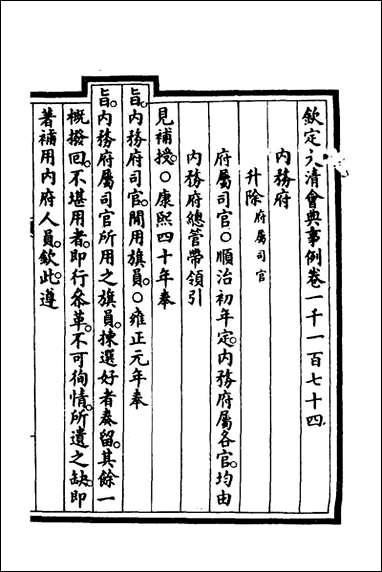 欽定大清會典事例卷一千一百七十四
內務府
升除府屬司官
府屬司官○順治初年定。內務府屬各官。均由
內務府總管帶領引
見補授。○康熙四十年奉
旨。內務府司官。閒用旗員。○雍正元年奉
旨。內務府屬司官所用之旗員。揀選好者奏留。其餘一
概撥回。不堪用者。即行參革。不可徇情。所遺之缺。即
著補用內府人員。欽此遵